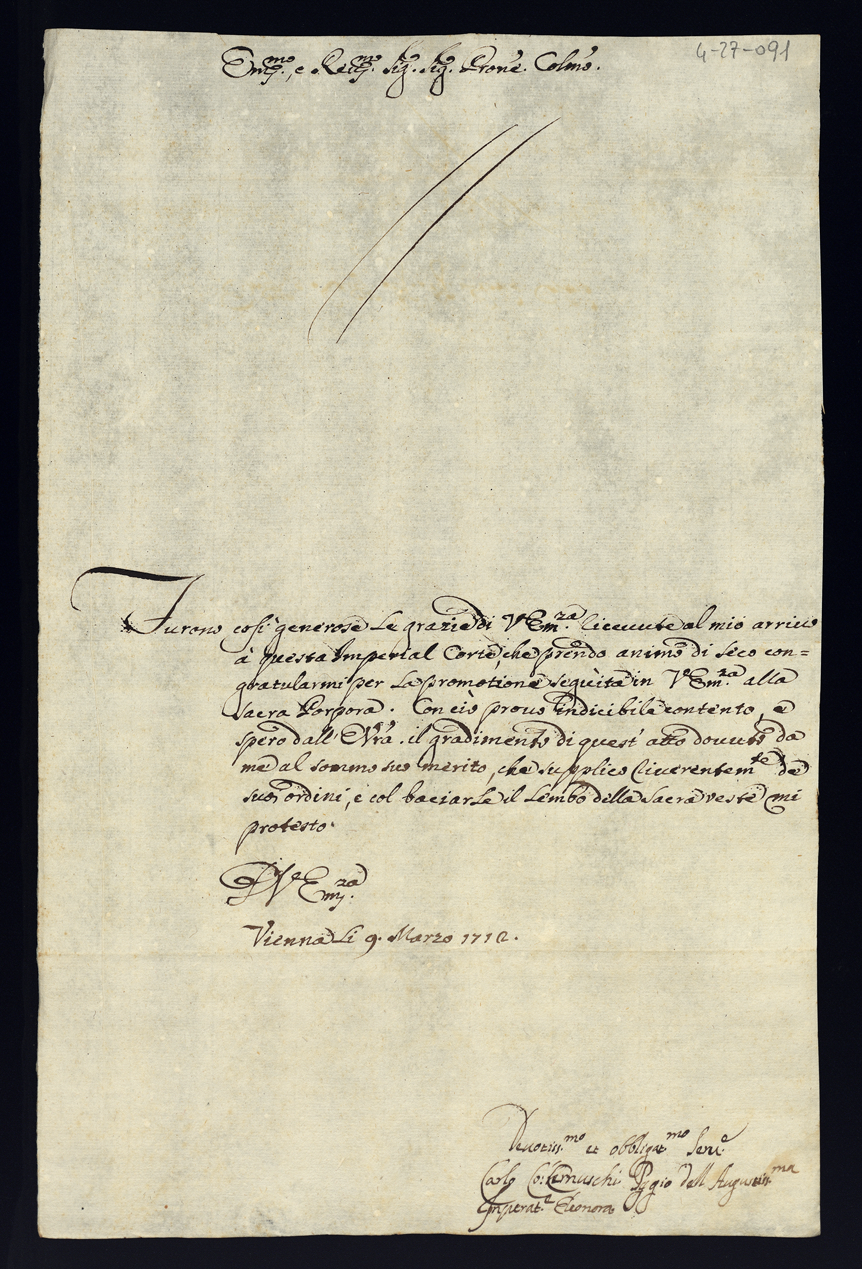 4-27-091
Em.mo, e Re.mo Sig. Sig. Prone. Colmo.
Furono così generose le grazie di V. Em.za riceuute al mio arriuo
à questa Imperial Corte, che prendo animo di seco con=
gratularmi per la promotione seguita in V. Em.za alla
sacra Porpora. Con ciò prouo indicibile contento, e
spero dall' Em.za Vra. il gradimento di quest' atto douuto da
me al sommo suo merito, che supplico riuerentem.te de
suoi ordini, e col baciarle il lembo della sacra veste mi
protesto.
D V.a Em.za
Vienna li 9. Marzo 1712.
Deuotiss.mo et obbligat.mo Seru.e
Carlo Co: Cernuschi Pggio dell Augustiss.ma
Imperat.e Eleonora